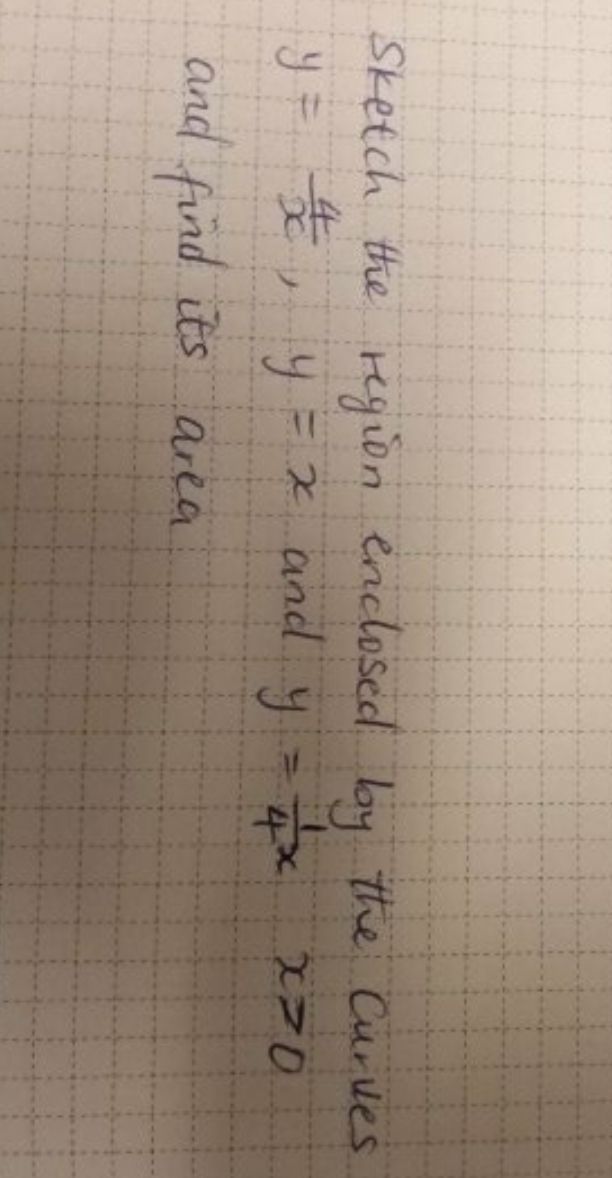 Sketch the region enclosed by the Curves
y = 4/x , y = x and y = 1/4 x x>0
and find its area